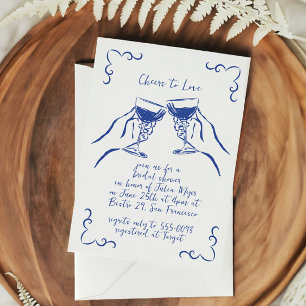 Cheers to Love
join me for a
bridal shower
in honor of Julia Meyer
on June 25th at 4pm at
Bistro 29, San Francisco
regrets only to 555-0093
registered at Target